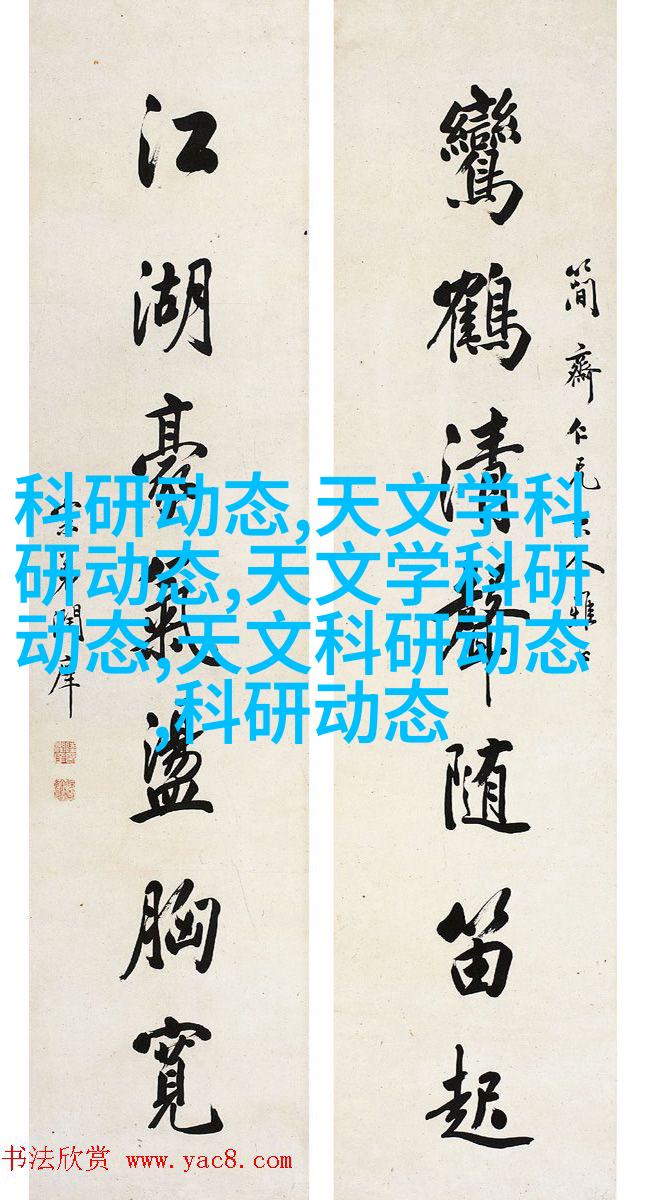 鸞鶴清聲随笛起
簡齋仁兄大人雅
江湖豪氣盪胸寬
宗弟開
科研动态,天文学科
研动态,天文学科研
动态,天文科研动态
,科研动态
书法欣赏 www.yac8.com